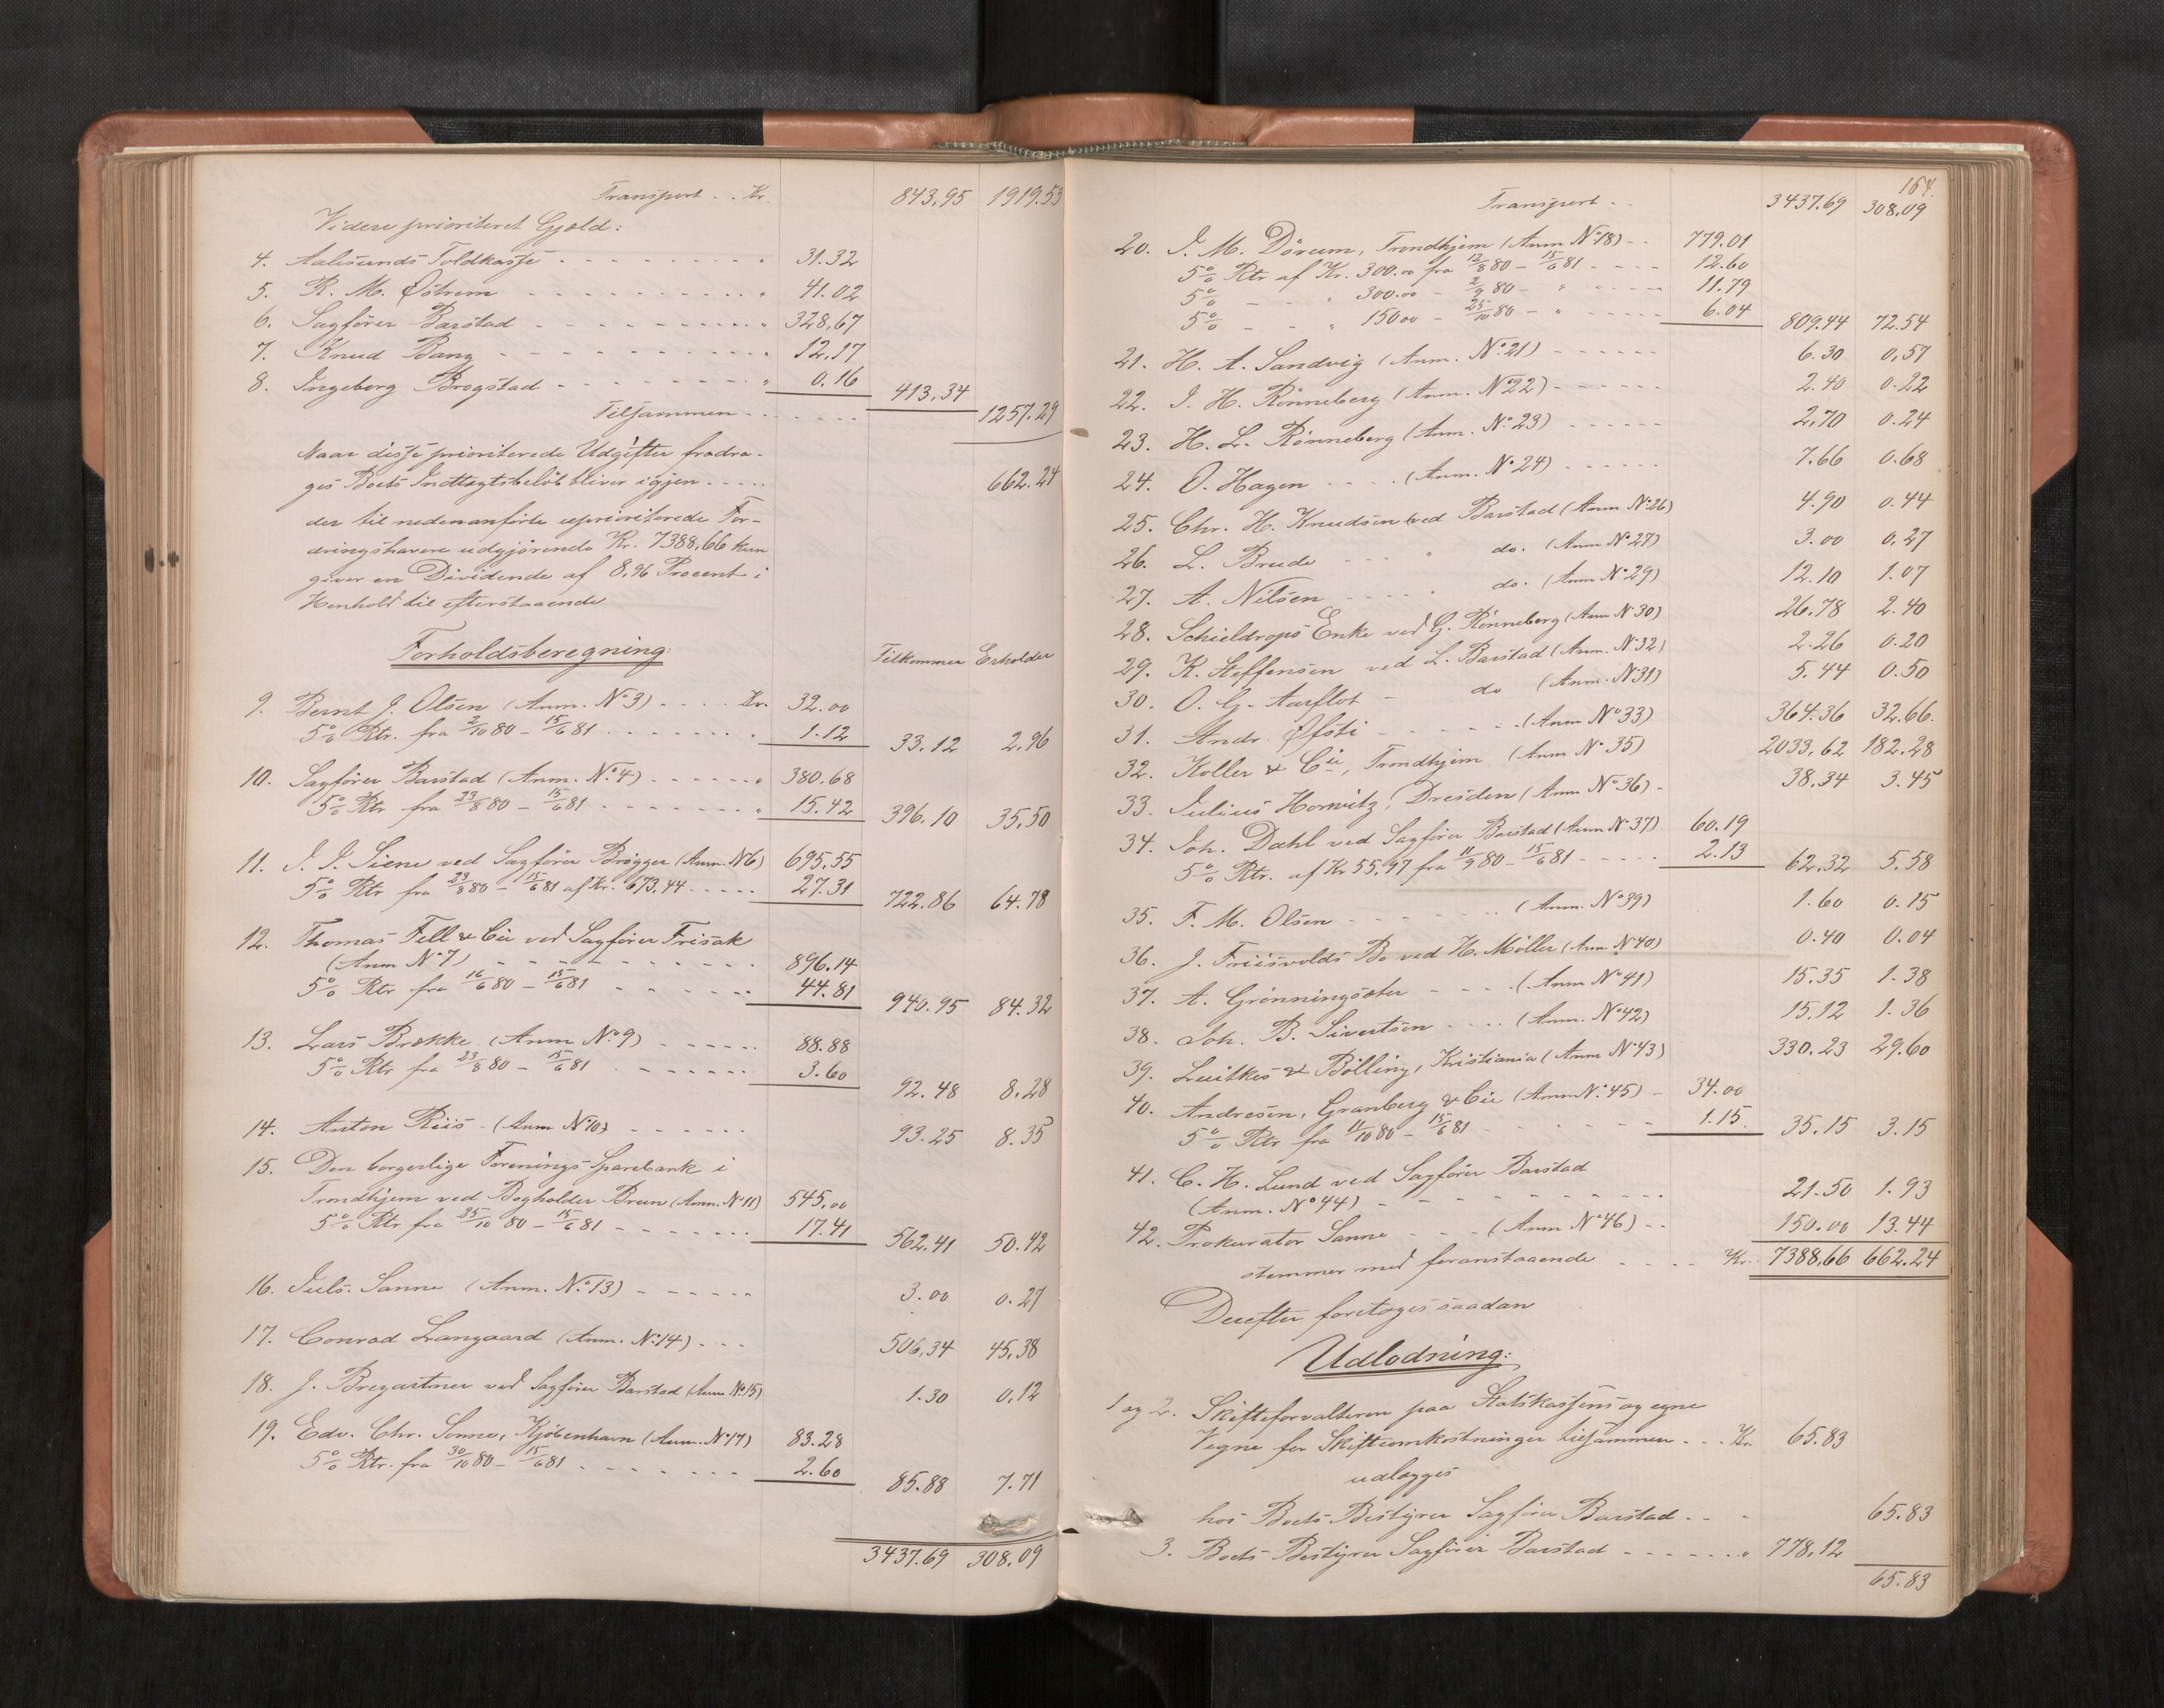 Transport . . Kr. 843,95 1919.53
Videre prioriteret Gjæld:
4. Aalesunds Toldkasse - - - - - - - " 31.32
5. R. M. Østrem - - - - - - - " 41.02
6. Sagfører Barstad - - - - - - - " 328,67
7. Knud Bang - - - - - - - " 12,17
8. Ingeborg Brogstad - - - - - - - " 0.16 413,34
Tilsammen - - - - 1257.29
Naar disse prioriterede Udgifter fradra-
ges Boets Indtægtsbeløb bliver igjen - - - - 662.24
der til nedenanførte uprioriterede For-
dringshavere udgjørende Kr. 7388,66 kun
giver en Dividende af 8,96 Procent i
Henhold til efterstaaende
Forholdsberegning: Tilkommer Erholder
9. Bernt J. Olsen (Anm. No 3) - - - - Kr. 32.00
5% Rtr. fra 2/10 80 - 15/6 81 - - - - " 1.12 33.12 2,96
10. Sagfører Barstad (Anm. No 4) - - - - " 380.68
5% Rtr fra 23/8 80 - 15/6 81 - - - - " 15.42 396.10 35,50
11. I. I. Siene ved Sagfører Brøgger (Anm. N 6) 695.55
5% Rtr fra 23/8 80 - 15/6 81 af Kr. 673,44 - - - - 27.31 722.86 64.78
12. Thomas Fell & Cie ved Sagfører Frisak
(Anm No 7) - - - - - - - 896.14
5% Rtr fra 16/6 80 - 15/6 81 - - - - 44.81 940.95 84.32
13. Lars Brække (Anm No 9) - - - - 88.88
5% Rtr fra 23/8 80 - 15/6 81 - - - - 3.60 92.48 8.28
14. Anton Riis - (Anm No 10) - - - - 93.25 8.35
15. Den borgerlige Forenings Sparebank i
Trondhjem ved Bogholder Bruun (Anm. No 11) 545,00
5% Rtr fra 25/10 80 - 15/6 81 - - - - 17.41 562.41 50.42
16. Juls. Sanne (Anm. No 13) - - - - 3.00 0.27
17. Conrad Langaard (Anm. No 14) - - - 506,34 45,38
18. J. Bregartner ved Sagfører Barstad (Anm No 15) 1.30 0,12
19. Edv. Chr. Sonne, Kjøbenhavn (Anm. No 17) 83.28
5% Rtr. fra 30/10 80 - 15/6 81 - - - - 2.60 85.88 7.71
3437.69 308,09
164.
Transport - - 3437.69 308,09
20. I. M. Dørum, Trondhjem (Anm No 18) - - 779.01
5% Rtr af Kr. 300.00 fra 12/8 80 - 15/6 81 - - - - 12.60
5% - - " 300.00 - 2/9 80 - " - - - - 11.79
5% - - " 150 00 - 25/10 80 - " - - - - 6.04 809.44 72.54
21. H. A. Sandvig (Anm. No 21) - - - - 6.30 0,57
22. I. H. Rønneberg (Anm. No 22) - - - - 2.40 0.22
23. H. L. Rønneberg (Anm. No 23) - - - - 2,70 0.24
24. O. Hagen - - - - (Anm. No 24) - - - - 7.66 0.68
25. Chr. H. Knudsen ved Barstad (Anm No 26) 4.90 0.44
26. L. Brude - - " do. (Anm No 27) 3.00 0,27
27. A. Nilsen - - - - " do. (Anm No 29) 12.10 1.07
28. Schieldrops Enke ved G. Rønneberg (Anm N 30) 26.78 2.40
29. K. Steffensen ved L. Barstad (Anm. N 32) 2.26 0.20
30. O. G. Aarflot - do (Anm. N 31) 5.44 0.50
31. Andr. Øfsti - - - - (Anm No 33) 364.36 32.66.
32. Koller & Cie, Trondhjem (Anm No 35) 2033,62 182.28
33. Julius Horwitz, Dresden (Anm No 36) - 38.34 3.45
34. Joh. Dahl ved Sagfører Barstad (Anm No 37) 60.19
5% Rtr. af Kr 55,97 fra 11/9 80 - 15/6 81 - - - - 2.13 62,32 5.58
35. F. M. Olsen - - - - (Anm. No 39) 1.60 0.15
36. J. Friisvolds Bo ved H. Møller (Anm No 40) 0.40 0.04
37. A. Grønningsæter - - - - (Anm No 41) 15.35 1.38
38. Joh. B. Sivertsen - - - - (Anm. No 42) 15,12 1.36
39. Luitkes & Bölling, Kristiania (Anm No 43) 330.23 29.60
40. Andresen, Granberg & Cie (Anm No. 45) - 34.00
5% Rtr fra 11/10 80 - 15/6 81 - - - - 1.15 35.15 3.15
41. C. H. Lund ved Sagfører Barstad
(Anm. No 44) - - - - - - - 21.50 1.93
42. Prokurator Sanne - - - (Anm No 46) - - 150.00 13.44
stemmer med foranstaaende - - - - Kr. 7388,66 662.24
Derefter foretoges saadan
Udlodning:
1 og 2. Skifteforvalteren paa Statskassens og egne
Vegne for Skifteomkostninger tilsammen - - - Kr. 65.83
udlægges
hos Boets Bestyrer Sagfører Barstad - - " 65.83
3. Boets Bestyrer Sagfører Barstad - - - - " 778,12
65.83